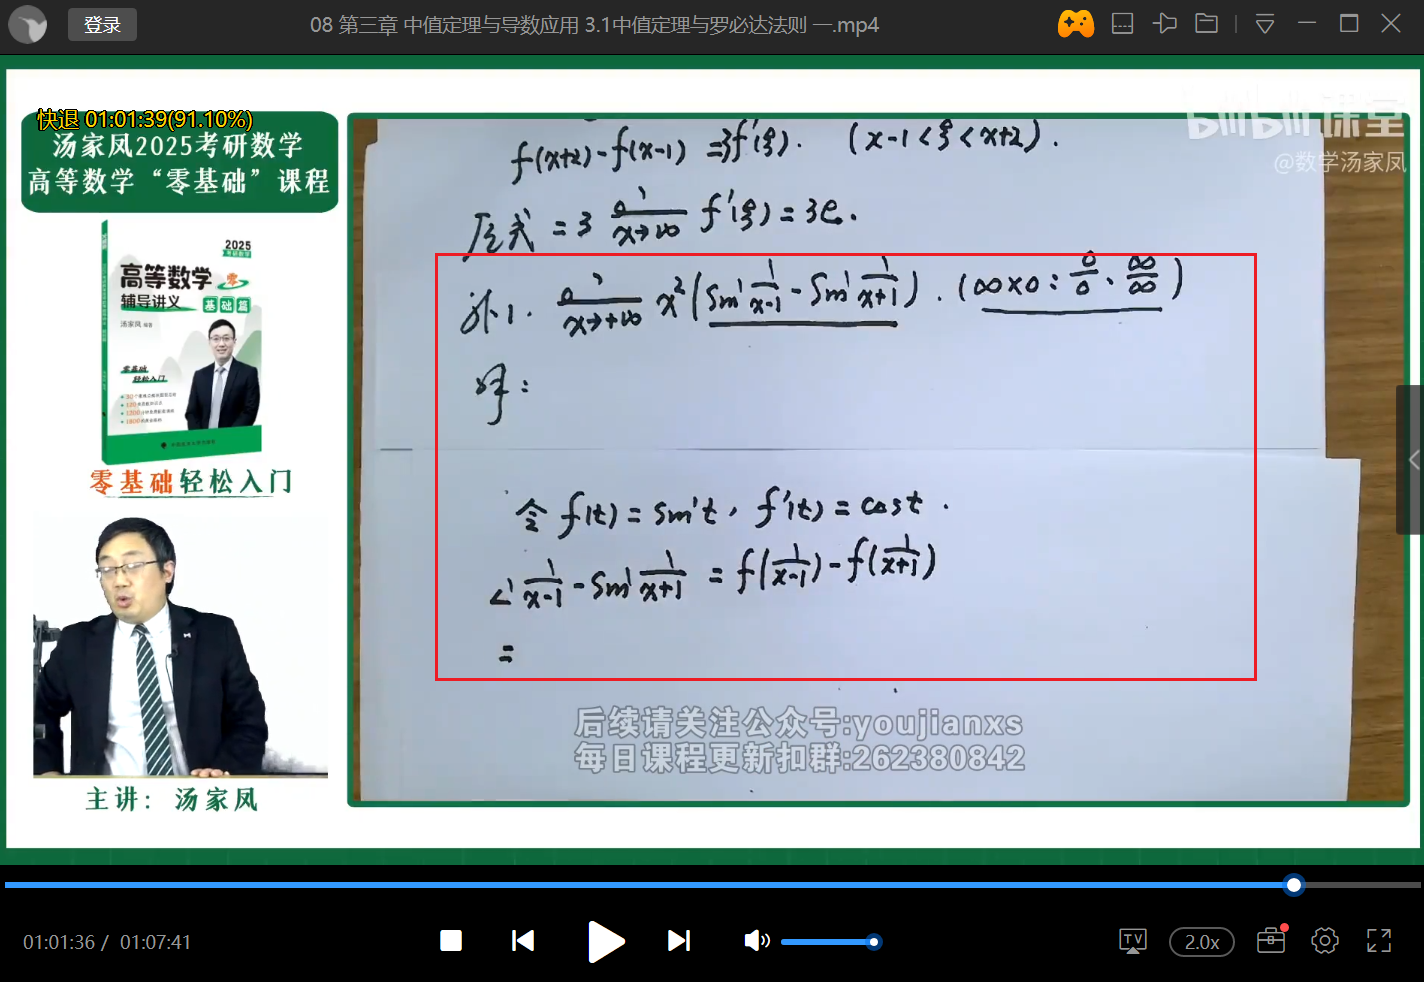 登录
08 第三章 中值定理与导数应用 3.1中值定理与罗必达法则 一.mp4
快退 01:01:39(91.10%)
汤家凤2025考研数学
高等数学“零基础”课程
2025
高等数学 零
辅导讲义 基础篇
汤家凤 编著
零基础
轻松入门
零基础轻松入门
主讲： 汤家凤
bilibili课堂
@数学汤家凤
f(x+2)-f(x-1) =3f'(ξ). (x-1<ξ<x+2).
原式 = 3 lim x→∞ f'(ξ) = 3e.
例1. lim x→+∞ x²(sin 1/(x-1) - sin 1/(x+1)). (∞×0: 0/0、∞/∞)
解:
令 f(t) = sin t, f'(t) = cos t.
1/(x-1) - sin 1/(x+1) = f(1/(x-1)) - f(1/(x+1))
=
后续请关注公众号:youjianxs
每日课程更新扣群:262380842
01:01:36 / 01:07:41
TV
2.0x